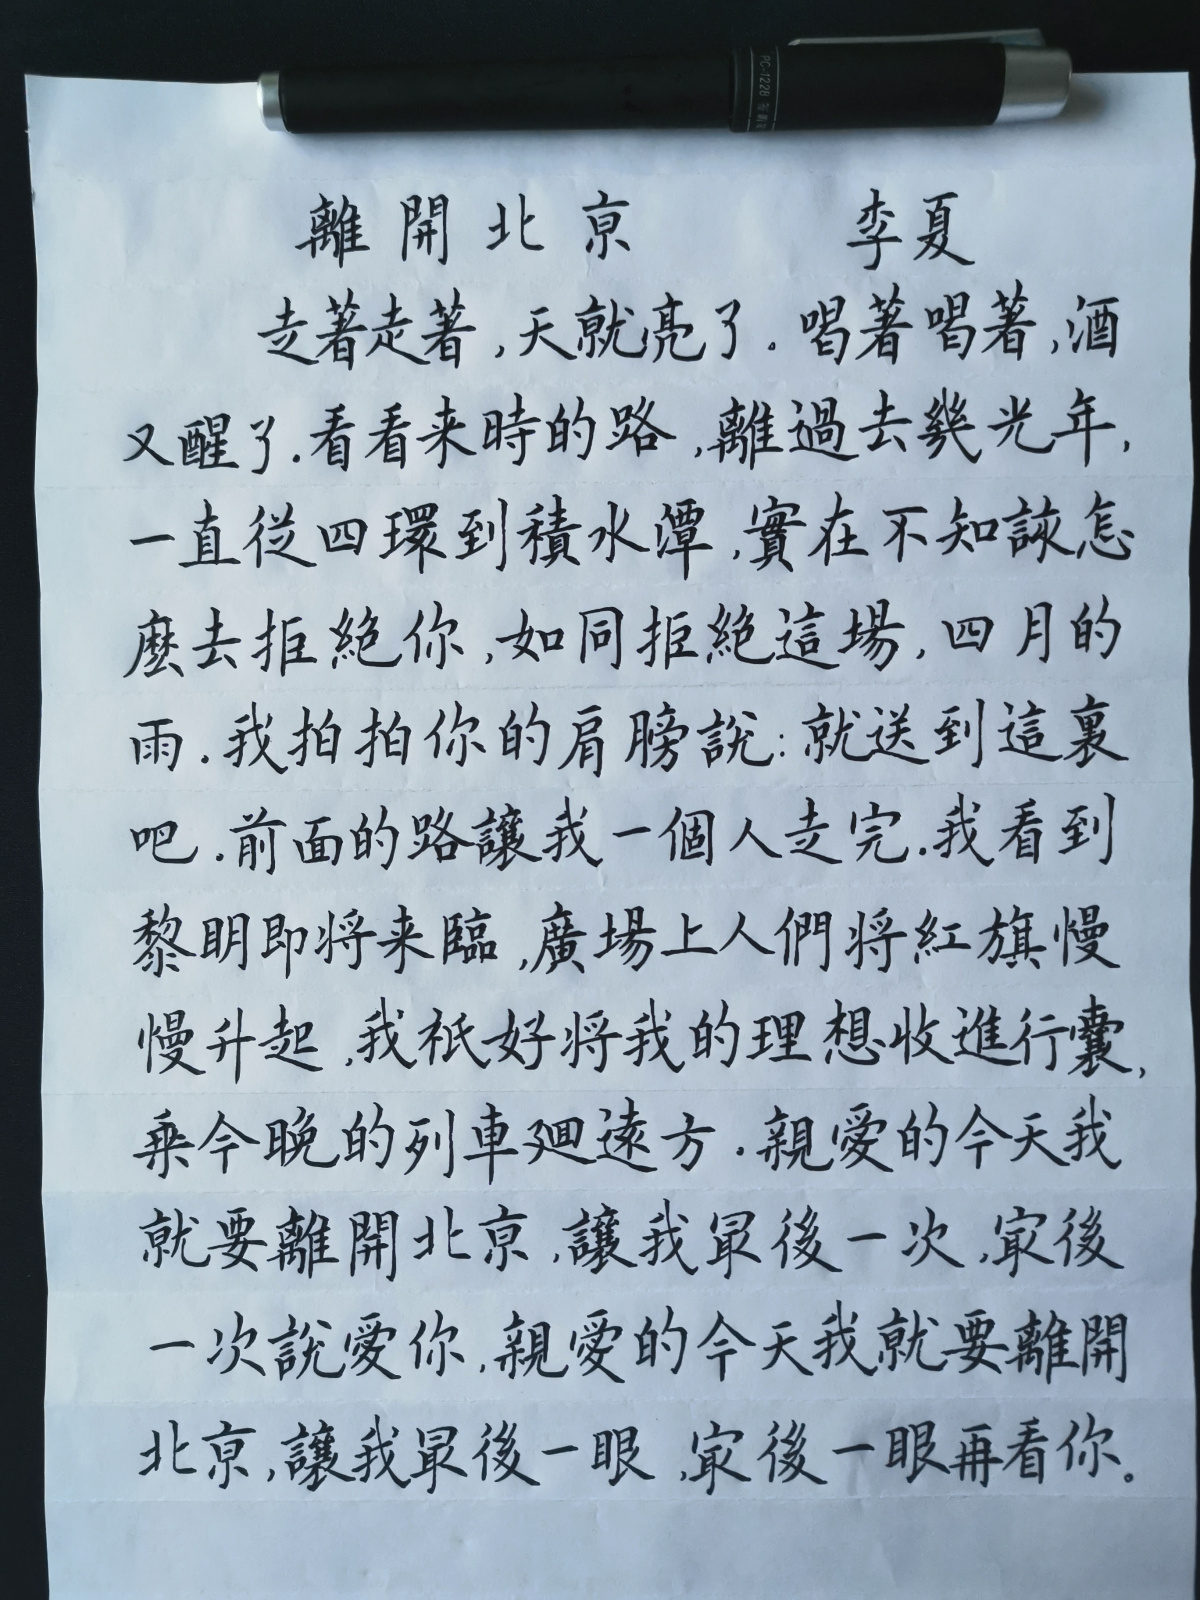 PC-122B
離開北京 李夏
走著走著，天就亮了．喝著喝著，酒
又醒了．看看来時的路，離過去幾光年，
一直從四環到積水潭，實在不知該怎
麼去拒絕你，如同拒絕這場，四月的
雨．我拍拍你的肩膀説：就送到這裏
吧．前面的路讓我一個人走完．我看到
黎明即将来臨，廣場上人們将紅旗慢
慢升起，我祇好将我的理想收進行囊，
乘今晚的列車迴遠方．親愛的今天我
就要離開北京，讓我最後一次，最後
一次説愛你，親愛的今天我就要離開
北京，讓我最後一眼，最後一眼再看你。